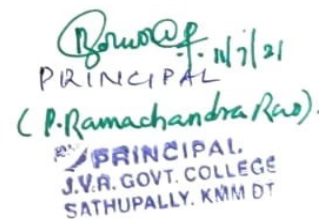 11/7/21
PRINCIPAL
(P.Ramachandra Rao).
PRINCIPAL,
J.V.R. GOVT. COLLEGE
SATHUPALLY. KMM DT